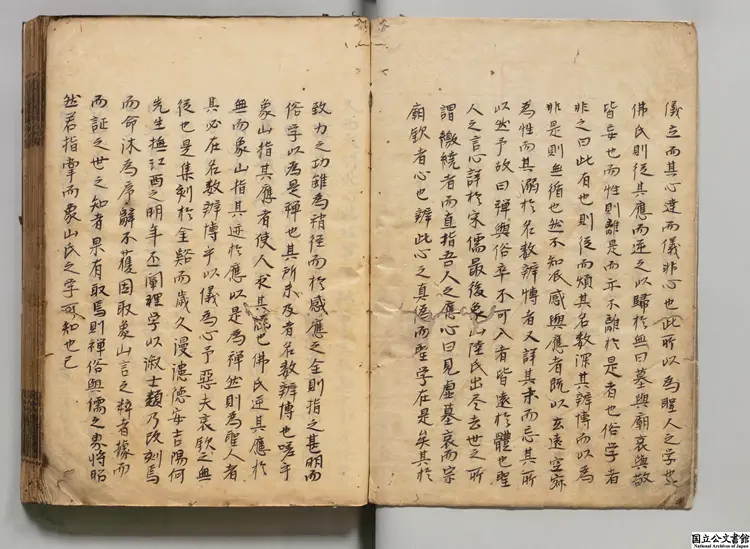 儀立而其心達而儀非心也此所以為聖人之学也
佛氏則従其應而逆之以歸於無曰墓與廟哀與敬
皆妄也而性則離是而亦不離於是者也俗学者
非之曰此有也則従而煩其名数深其辨博而以為
非是則無循也然不知哀感與應者既以玄遠空寂
為性而其溺於名数辨博者又詳其末而忘其所
以然予故曰禪與俗卒不可入者皆遠於體也聖
人之言心詳於宋儒最後象山陸氏出尽去世之所
謂繳繞者而直指吾人之應心曰見虚墓哀而宗
廟欽者心也辨此心之真偽而聖学在是矣其於
致力之功雖為稍径而於感應之全則指之甚明而
俗学以為是禪也其所未及者名数辨博也嗟乎
象山指其應者使人求其感也佛氏逆其應於
無而象山指其迹於應以是為禪然則為聖人者
其必在名数辨博乎以儀為心予惡夫哀欽之無
従也是集刻於金谿而歲久漫漶德安吉陽何
先生撫江西之明年丕闡理学以淑士類乃改刻焉
而命沐為序辭不獲因取象山言之粹者據而
而証之世之知者果有取焉則禅俗與儒之界将昭
然若指掌而象山氏之学可知也已
国立公文書館
National Archives of Japan